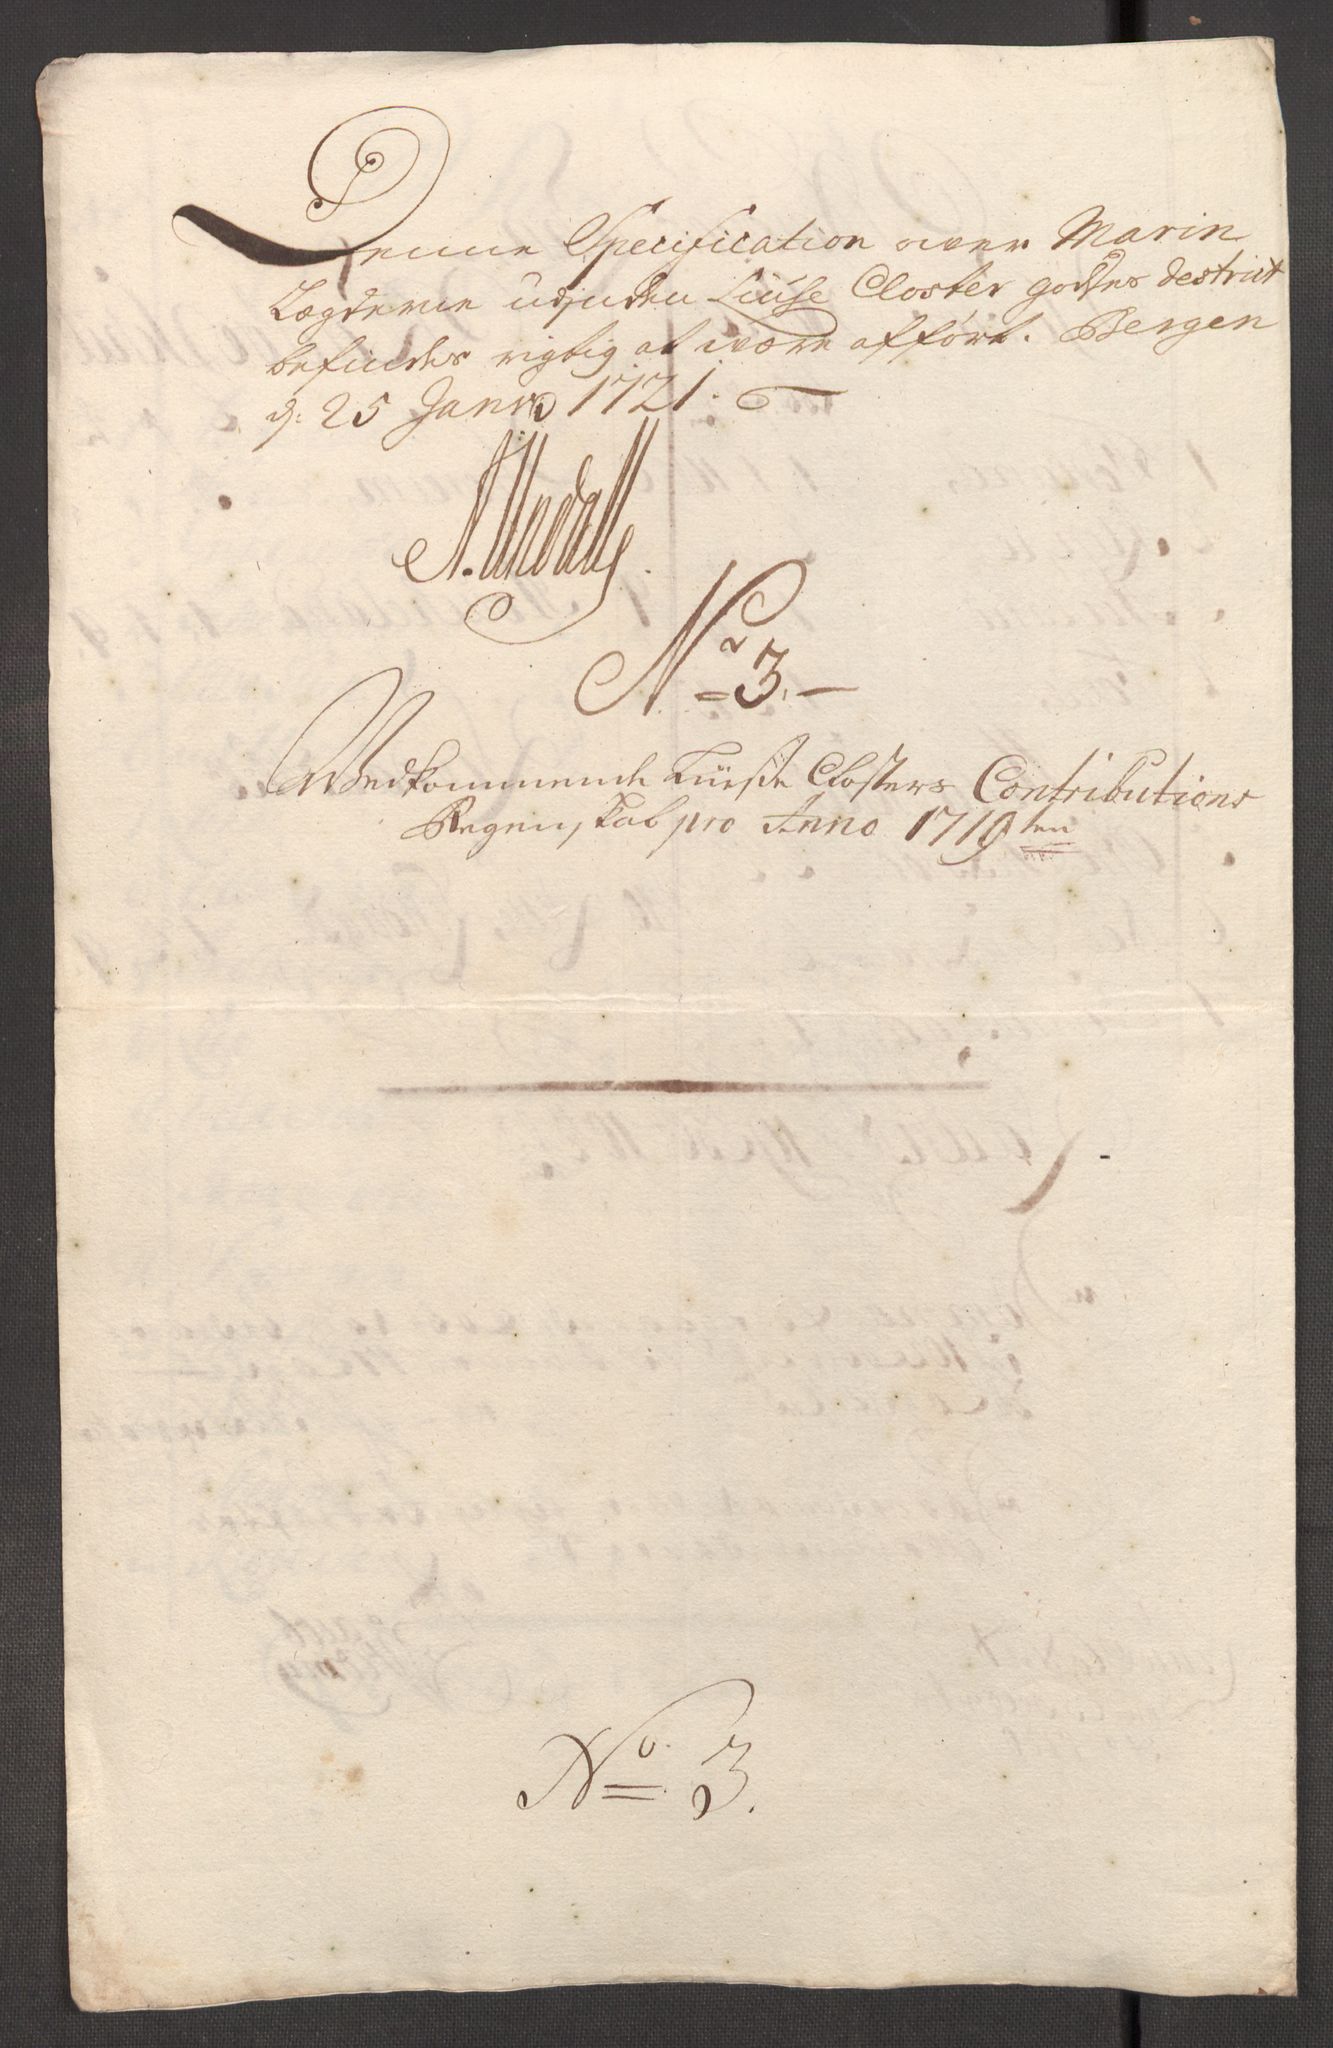 Denne Specification over Marin
Lægderne udj den Liuse Closter godses destrict
befindes rigtig at være afført. Bergen
d: 25 Janrj 1721.
Nr 3.
Vedkommende Lüsse Closters Contributions
Regenskab pro Anno 1719ten
No 3.